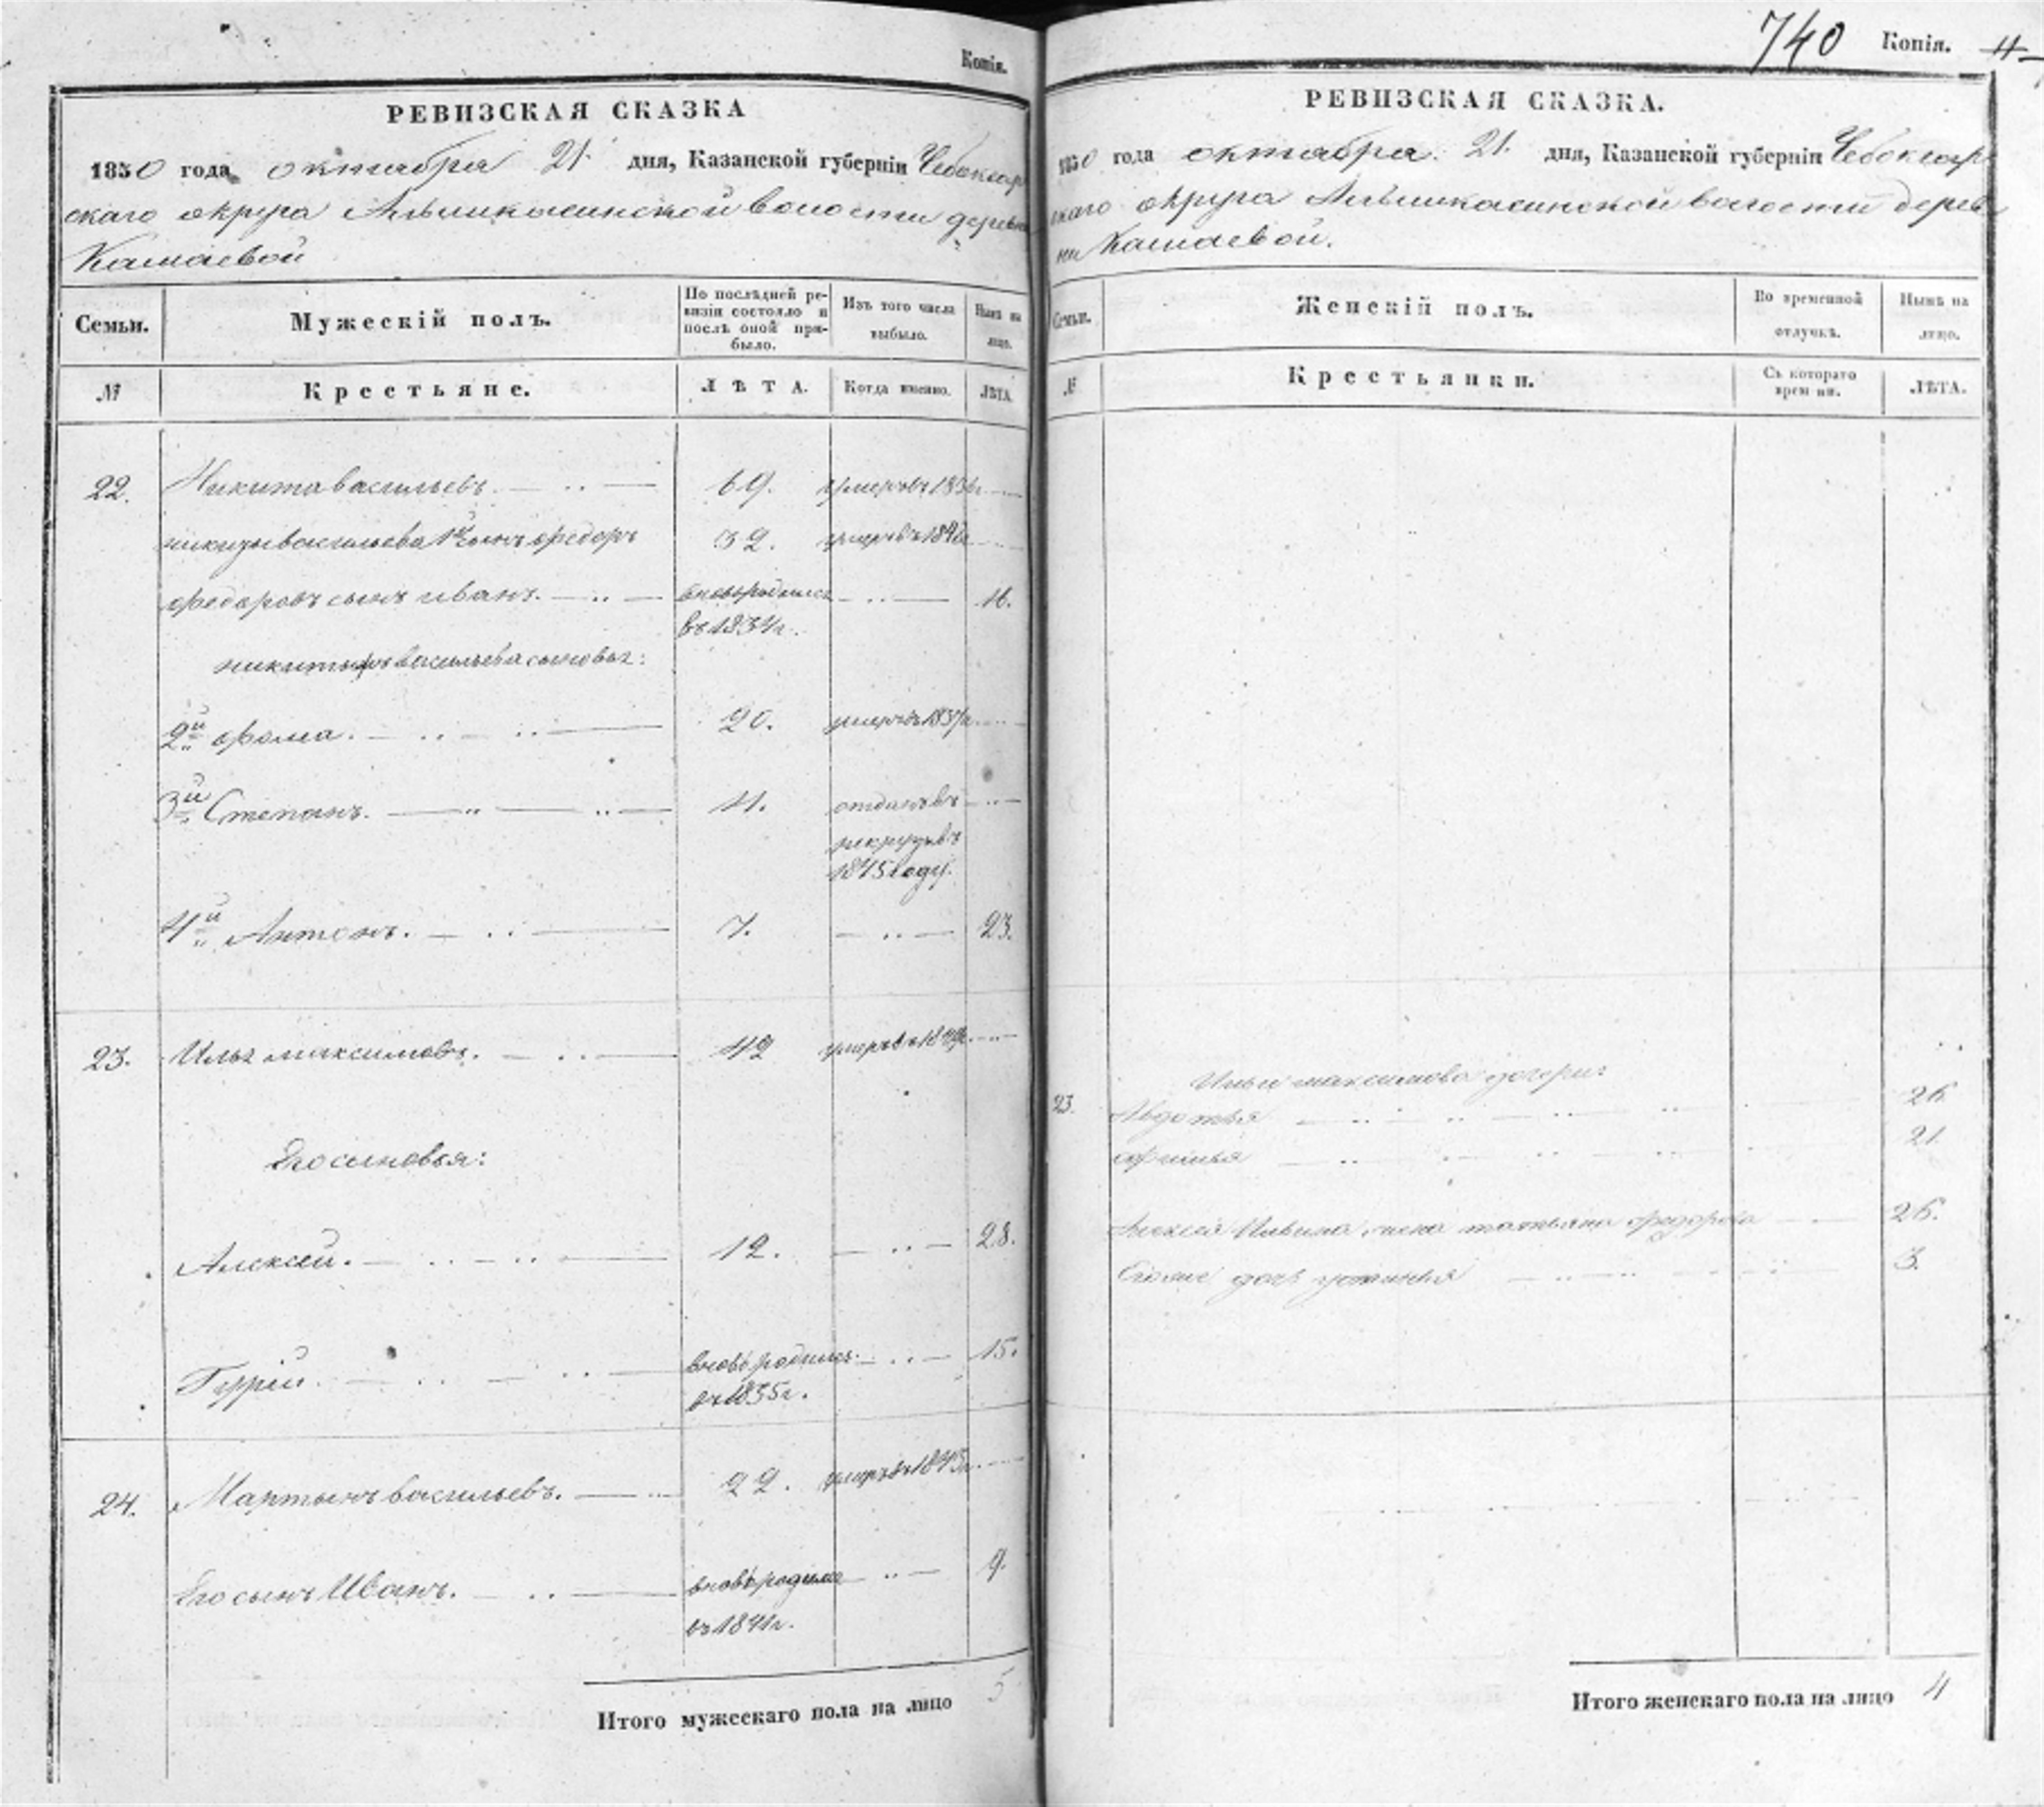 Копія.
РЕВИЗСКАЯ СКАЗКА
1850 года октября 21 дня, Казанской губерніи Чебоксар
скаго округа Алымкасинской волости деревни
Кашаевой
Семьи. Мужескій полъ. По послѣдней ревизіи состояло и послѣ оной прибыло. Изъ того числа выбыло. Нынѣ на лицо.
№ Крестьяне. ЛѢТА. Когда именно. ЛѢТА.
22. Никита васильевъ. 69. умеръ въ 1836г
никиты васильева 1й сынъ федоръ 32. умеръ въ
федоровъ сынъ иванъ. вновь родился 16.
въ 1834г.
никиты васильева сыновья:
2й фома. 20. умеръ въ 1837г
3й Степанъ. 11. отданъ въ
рекруты въ
1845 году.
4й Антонъ. 7. 23.
23. Илья максимовъ. 42 умеръ въ
Его сыновья:
Алексей. 12. 28.
Гурій. вновь родился 15.
въ 1835г.
24. Мартынъ васильевъ. 22. умеръ въ 1843г.
Его сынъ Иванъ. вновь родился 9.
въ 1841г.
Итого мужескаго пола на лицо 5
740 Копія.
РЕВИЗСКАЯ СКАЗКА.
1850 года октября 21. дня, Казанской губерніи Чебоксар
скаго округа Алымкасинской волости дерев
ни Кашаевой.
Семьи. Женскій полъ. Во временной отлучкѣ. Нынѣ на лицо.
№ Крестьянки. Съ котораго времени. ЛѢТА.
Ильи максимова дочери:
23. Авдотья 26
офимья 21
Алексея Ильина жена татьяна федорова 26.
дочь устинья 3.
Итого женскаго пола на лицо 4